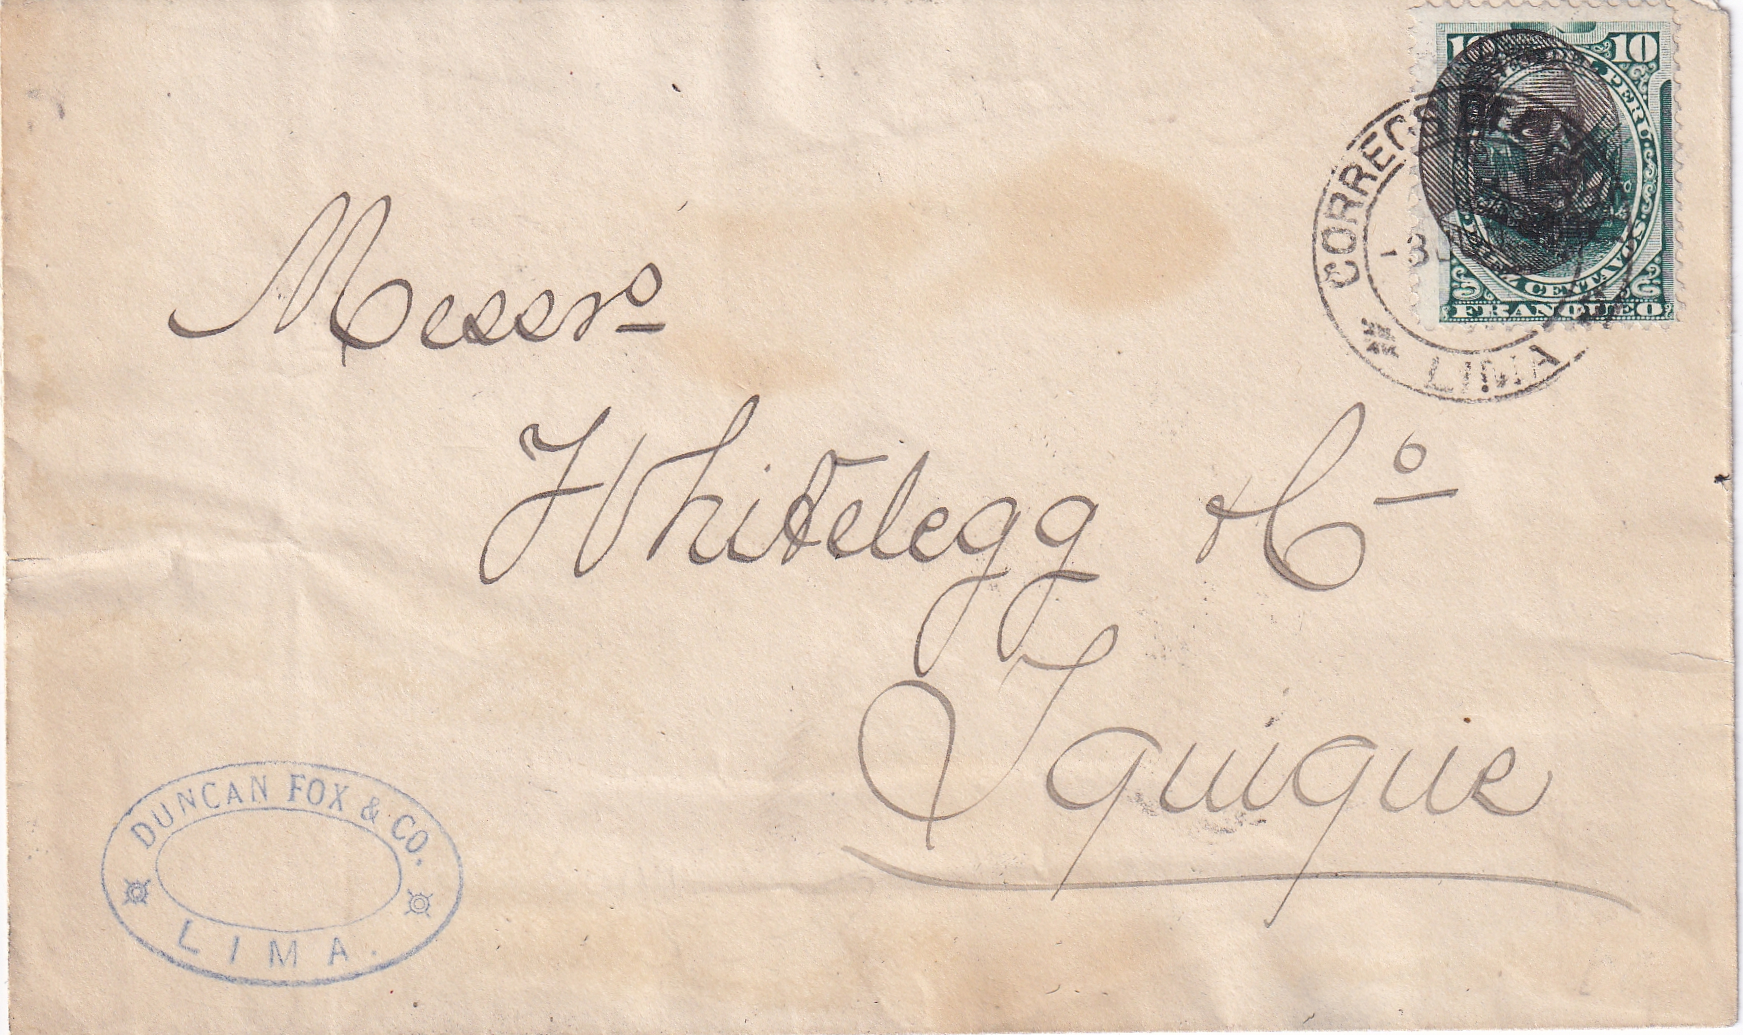 10 10
DEL PERU
CENTAVOS
FRANQUEO
CORREOS
LIMA
Messrs
Whitelegg & Co
Iquique
DUNCAN FOX & CO.
LIMA.